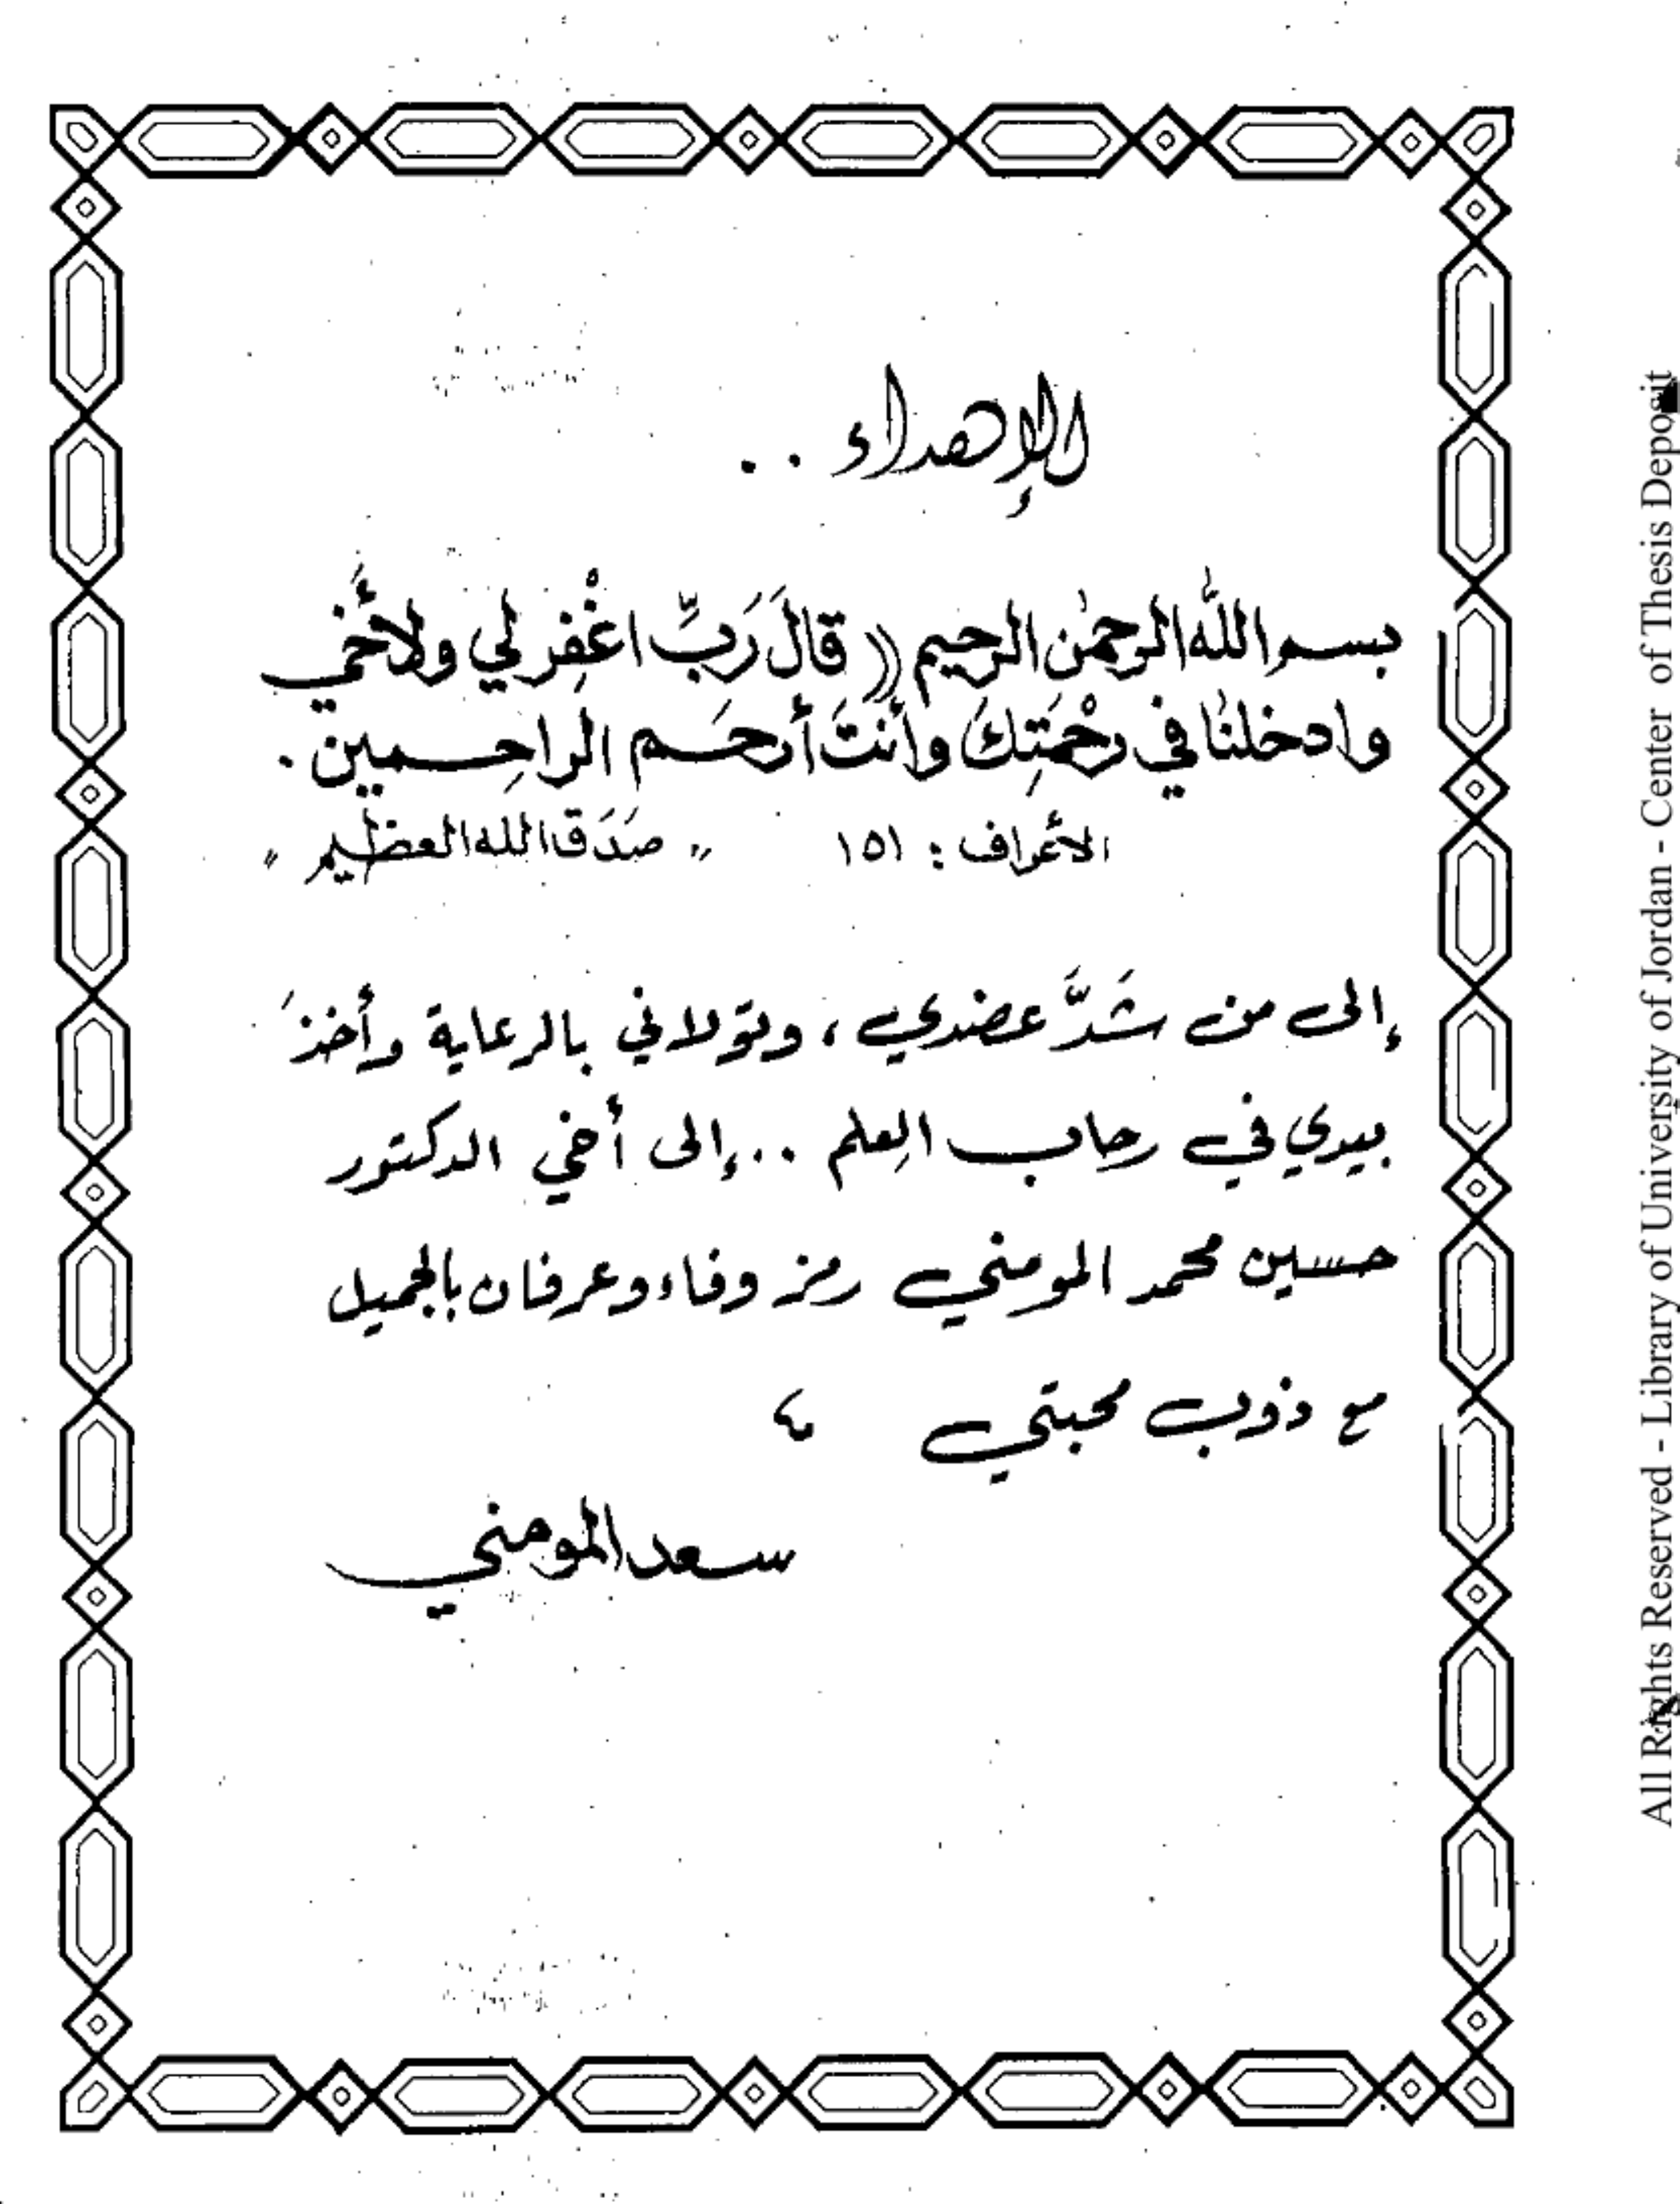 الإهداء ..
بسم الله الرحمن الرحيم « قالَ رَبِّ اغْفِر لي ولأَخي
وادخلنا في رحْمَتِكَ وأنتَ أرحَم الراحِمين .
الأعراف : ١٥١ " صَدَق الله العظيم "
إلى من شَدَّ عضدي ، وتولاني بالرعاية وأخذَ
بيدي في رحاب العِلم .. إلى أخي الدكتور
حسين محمد المومني رمز وفاء وعرفان بالجميل
مع ذوب محبتي
سعد المومني
All Rights Reserved - Library of University of Jordan - Center of Thesis Deposit